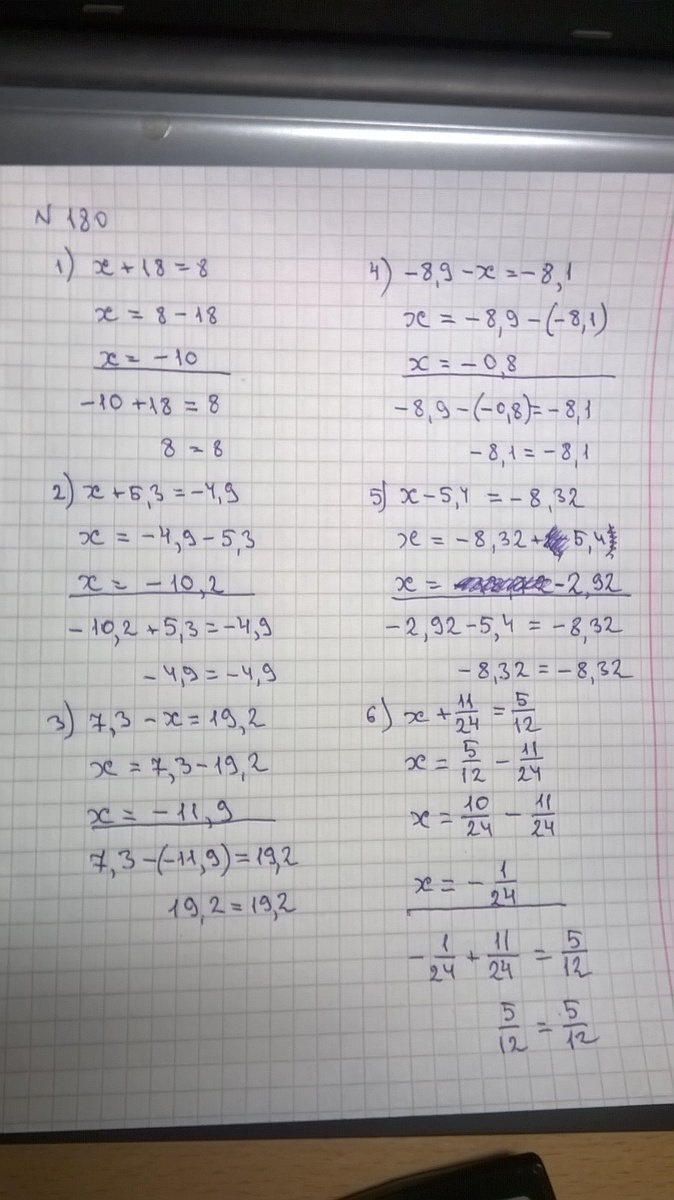 N 180
1) x + 18 = 8
x = 8 - 18
x = -10
-10 + 18 = 8
8 = 8
2) x + 5,3 = -4,9
x = -4,9 - 5,3
x = -10,2
-10,2 + 5,3 = -4,9
-4,9 = -4,9
3) 7,3 - x = 19,2
x = 7,3 - 19,2
x = -11,9
7,3 - (-11,9) = 19,2
19,2 = 19,2
4) -8,9 - x = -8,1
x = -8,9 - (-8,1)
x = -0,8
-8,9 - (-0,8) = -8,1
-8,1 = -8,1
5) x - 5,4 = -8,32
x = -8,32 + 5,4
x = -2,92
-2,92 - 5,4 = -8,32
-8,32 = -8,32
6) x + 11/24 = 5/12
x = 5/12 - 11/24
x = 10/24 - 11/24
x = - 1/24
- 1/24 + 11/24 = 5/12
5/12 = 5/12